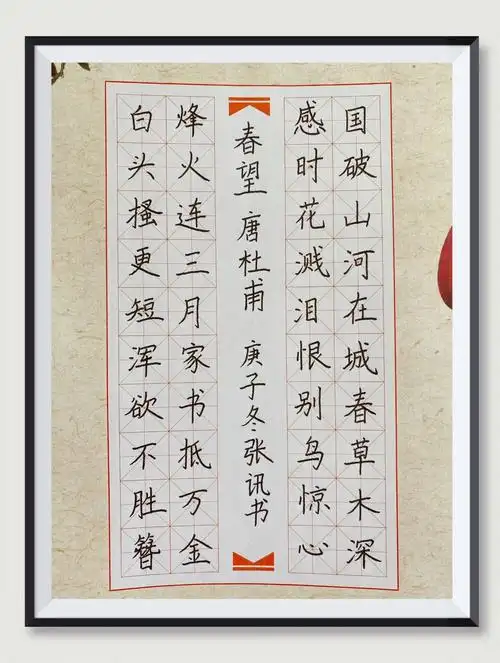 国破山河在城春草木深
感时花溅泪恨别鸟惊心
春望 唐 杜甫 庚子冬 张讯书
烽火连三月家书抵万金
白头搔更短浑欲不胜簪